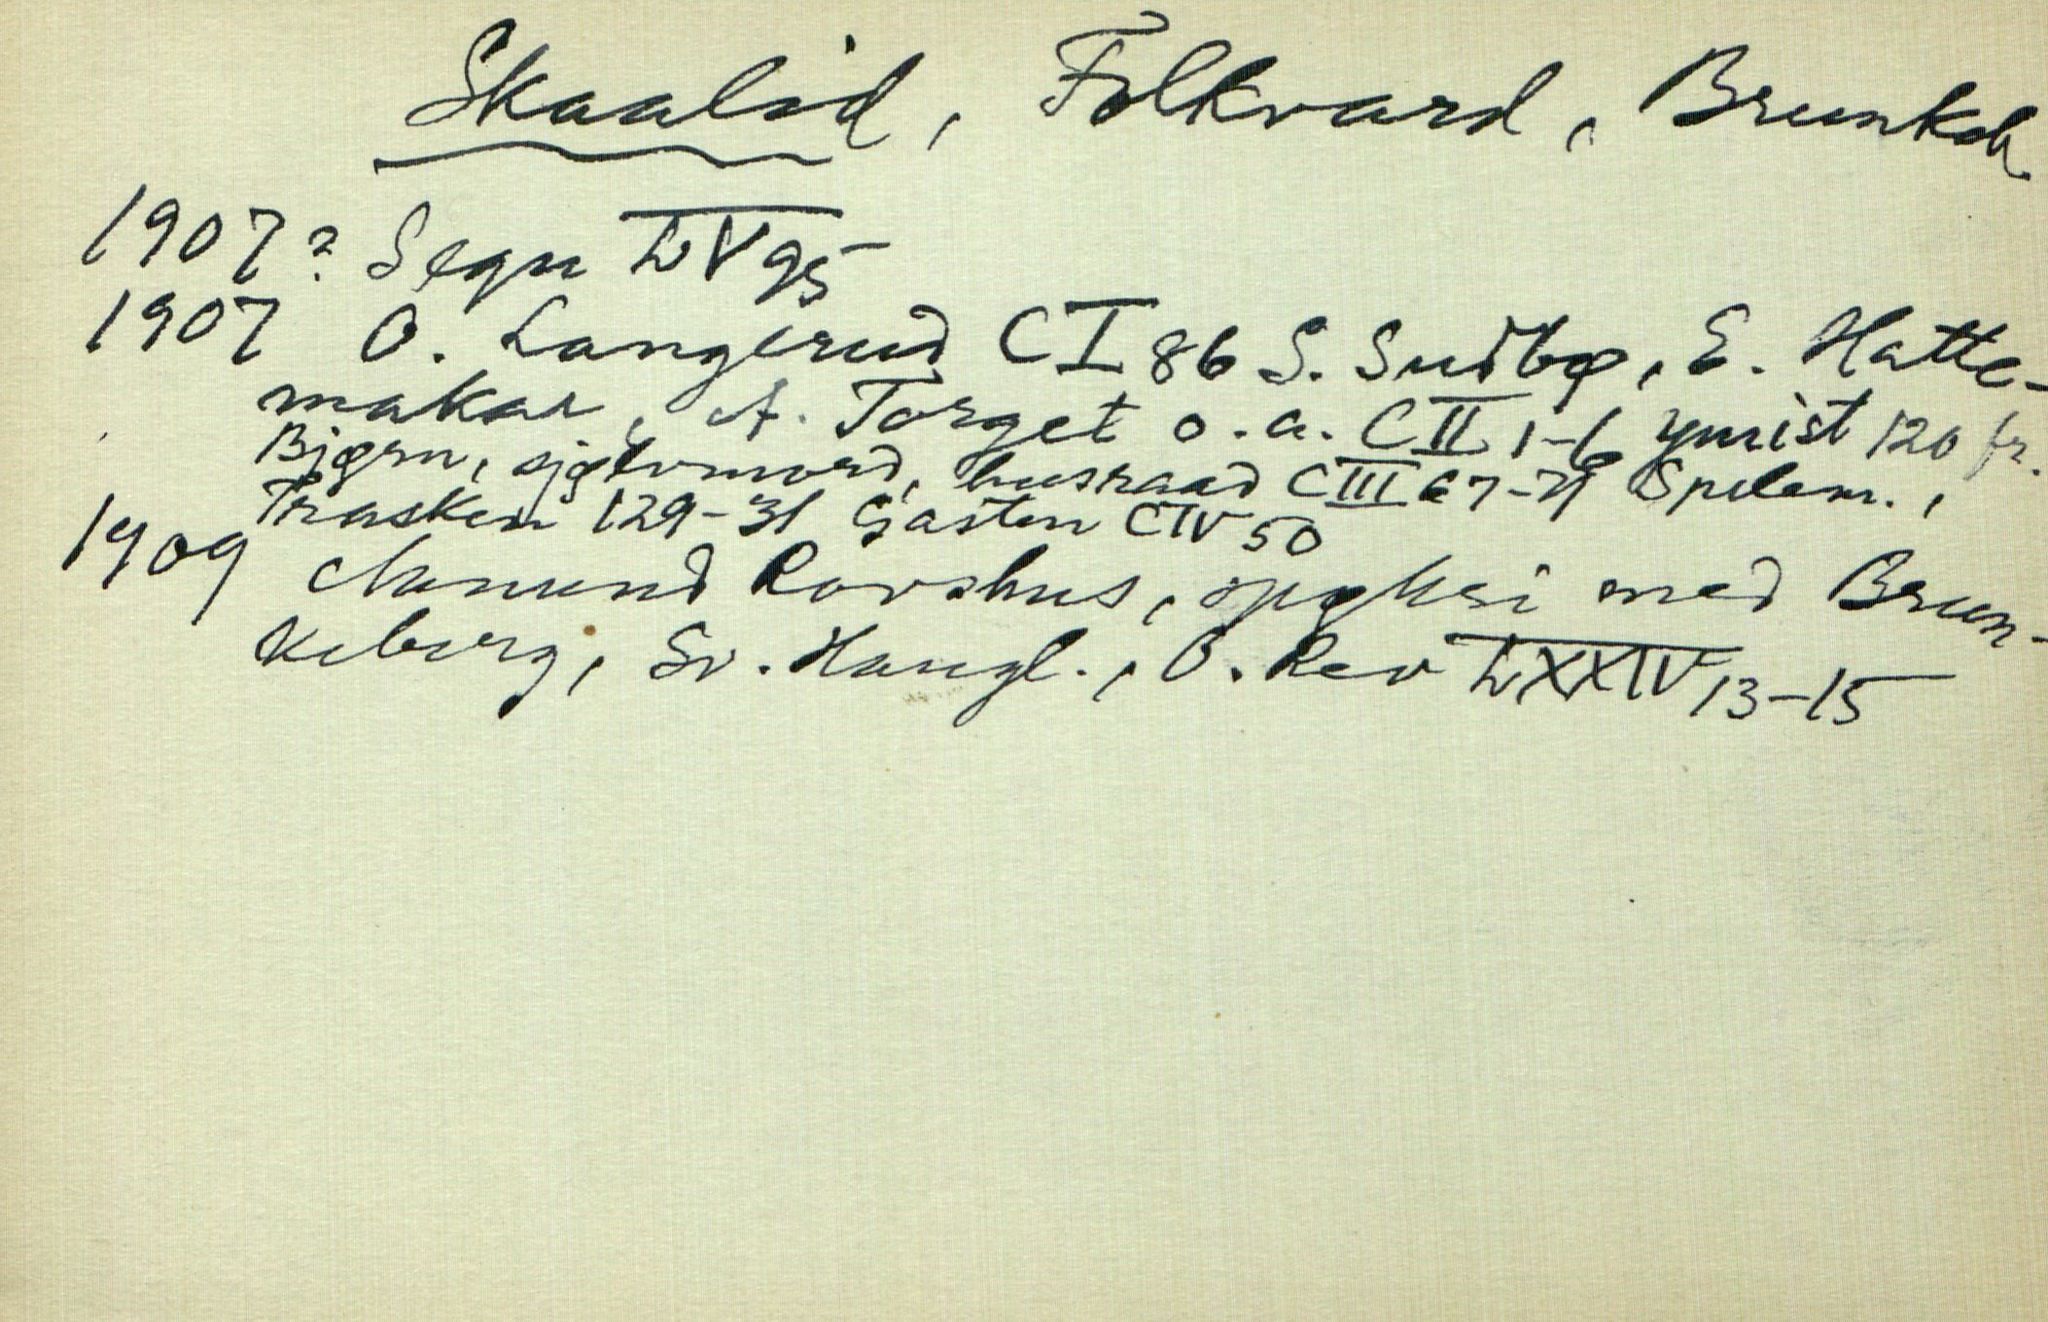 Skaalid, Folkvard, Brunkeb.
1907? Segn LV 95
1907 O. Langerud CI 86 S. Sudbø, E. Hatte-
makar, A. Torget o.a. CII 1-6 ymist 120 fr.
Bjørn, sjølvmord, husraad CIII 67-71 Spelem.,
Trasken 129-31 Gasten CIV 50
1909 Aamund Rovshus, med Brun-
keberg, Sv. Haugl., O. Rev LXXIV 13-15